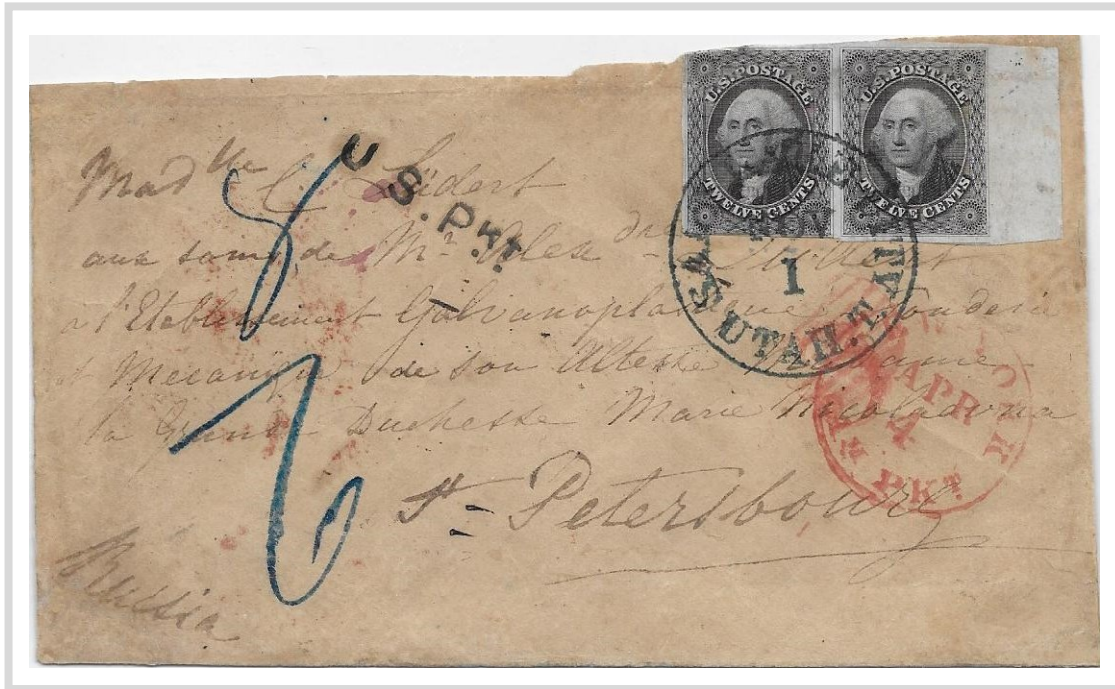 U.S. POSTAGE
TWELVE CENTS
U.S. POSTAGE
TWELVE CENTS
U S. Pkt.
1
UTAH.T.
APR
4
PKT
Madlle C.
aux soins de Mr Alexdre
a l'Etablissement Galvanoplastique Fonderie
et Mecanique de son Altesse Madame
la Grande Duchesse Marie Nicolaevna
St Petersbourg
Russia